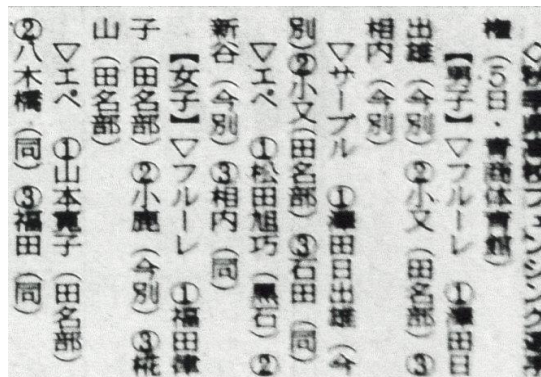 権（5日・青商体育館）
【男子】▽フルーレ　①澤田日
出雄（今別）②小又（田名部）③
相内（今別）
▽サーブル　①澤田日出雄（今
別）②小又（田名部）③石田（同）
▽エペ　①松田旭巧（黒石）②
新谷（今別）③相内（同）
【女子】▽フルーレ　①福田
子（田名部）②小鹿（今別）③椛
山（田名部）
▽エペ　①山本寛子（田名部）
②八木橋（同）③福田（同）